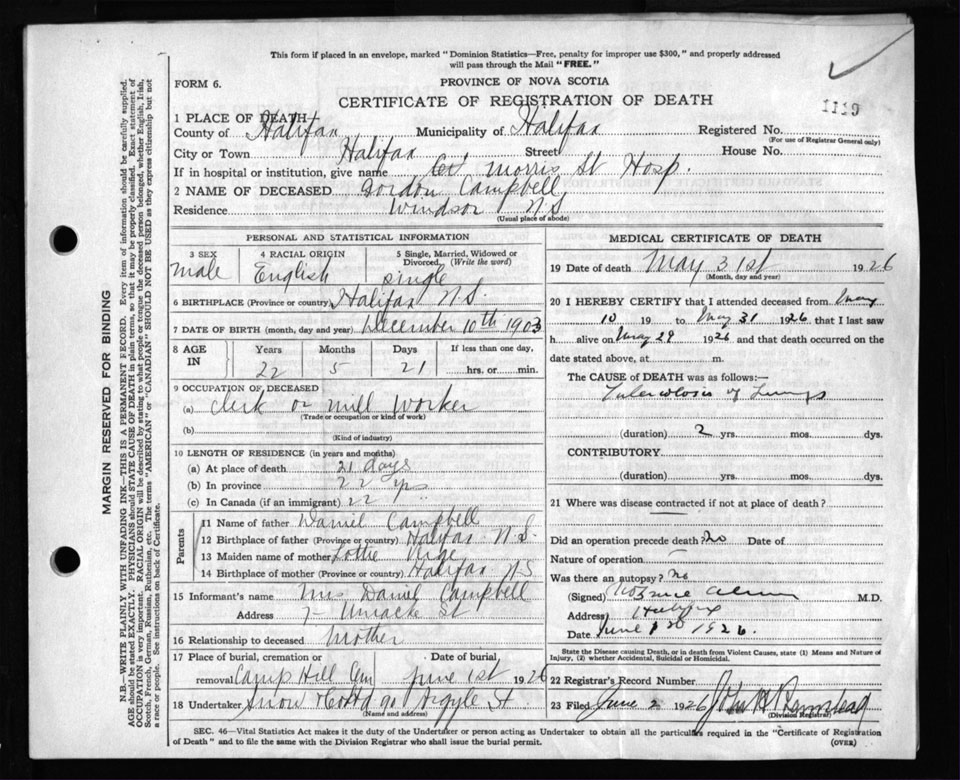 This form if placed in an envelope, marked "Dominion Statistics—Free, penalty for improper use $300," and properly addressed
will pass through the Mail "FREE."
FORM 6.
PROVINCE OF NOVA SCOTIA
CERTIFICATE OF REGISTRATION OF DEATH
1119
1 PLACE OF DEATH
County of Halifax Municipality of Halifax Registered No.
(For use of Registrar General only)
City or Town Halifax Street House No.
If in hospital or institution, give name Morris St Hosp.
2 NAME OF DECEASED Gordon Campbell
Residence Windsor N.S
(Usual place of abode)
PERSONAL AND STATISTICAL INFORMATION
3 SEX 4 RACIAL ORIGIN 5 Single, Married, Widowed or
Divorced (Write the word)
male English single
6 BIRTHPLACE (Province or country) Halifax N.S.
7 DATE OF BIRTH (month, day and year) December 10th 1903
8 AGE IN Years Months Days If less than one day,
22 5 21 hrs. or min.
9 OCCUPATION OF DECEASED
(a) Clerk or mill worker
(Trade or occupation or kind of work)
(b)
(Kind of industry)
10 LENGTH OF RESIDENCE (in years and months)
(a) At place of death 21 days
(b) In province 22 yrs
(c) In Canada (if an immigrant) 22 "
Parents
11 Name of father Daniel Campbell
12 Birthplace of father (Province or country) Halifax N.S.
13 Maiden name of mother Lottie
14 Birthplace of mother (Province or country) Halifax N.S
15 Informant's name Mrs Daniel Campbell
Address 7 Uniacke St
16 Relationship to deceased Mother
17 Place of burial, cremation or Date of burial
removal Camp Hill Cem June 1st 1926
18 Undertaker Snow & Co Ltd 90 Argyle St
(Name and address)
MEDICAL CERTIFICATE OF DEATH
19 Date of death May 31st 1926
(Month, day and year)
20 I HEREBY CERTIFY that I attended deceased from May
10 19 to May 31 1926 that I last saw
h alive on May 29 1926 and that death occurred on the
date stated above, at m.
The CAUSE of DEATH was as follows:—
Tuberculosis of Lungs
(duration) 2 yrs. mos. dys.
CONTRIBUTORY
(duration) yrs. mos. dys.
21 Where was disease contracted if not at place of death?
Did an operation precede death? No Date of
Nature of operation —
Was there an autopsy? No
(Signed) M.D.
Address Halifax
Date June 1926.
State the Disease causing Death, or in death from Violent Causes, state (1) Means and Nature of
Injury, (2) whether Accidental, Suicidal or Homicidal.
22 Registrar's Record Number
23 Filed June 2 1926 John H
(Division Registrar)
SEC. 46—Vital Statistics Act makes it the duty of the Undertaker or person acting as Undertaker to obtain all the particulars required in the "Certificate of Registration
of Death" and to file the same with the Division Registrar who shall issue the burial permit. (OVER)
MARGIN RESERVED FOR BINDING
N.B.—WRITE PLAINLY WITH UNFADING INK—THIS IS A PERMANENT RECORD. Every item of information should be carefully supplied.
AGE should be stated EXACTLY. PHYSICIANS should STATE CAUSE OF DEATH in plain terms, so that it may be properly classified. Exact statement of
OCCUPATION is very important. RACIAL ORIGIN will be described by stating to what people or tongue the deceased person belonged, whether English, Irish,
Scotch, French, German, Russian, Ruthenian, etc. The terms "AMERICAN" or "CANADIAN" SHOULD NOT BE USED as they express citizenship but not
a race or people. See instructions on back of Certificate.